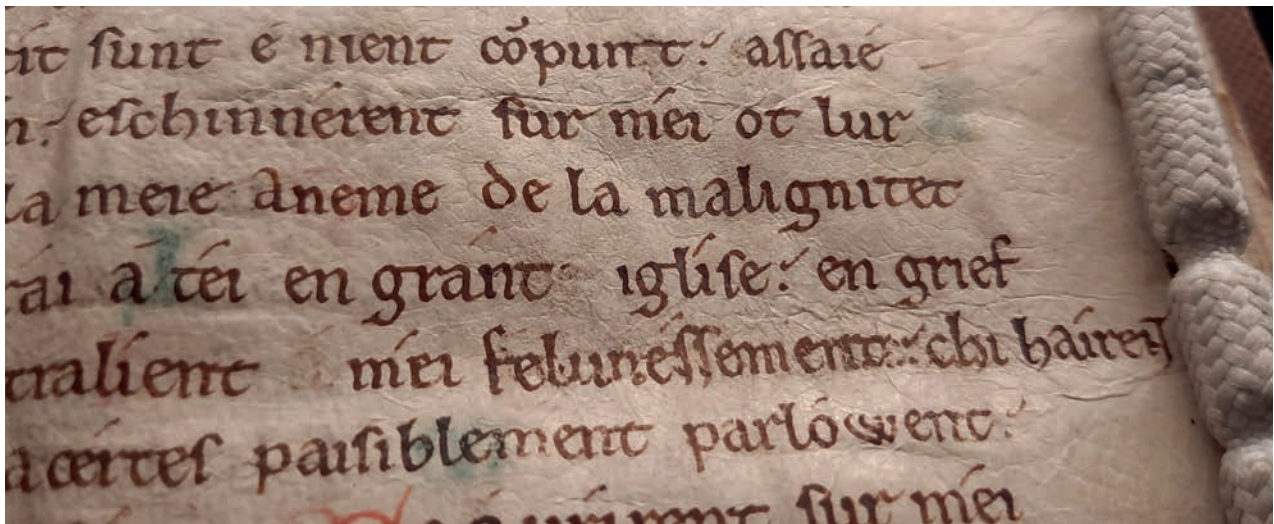 sunt e nient cōpunt: assaié
eschinnérent sur méi ot lur
la meie aneme de la malignitet
rái á téi en gránt iglíse: en grief
tralíent méi felunessement: chi háirent
acertes paisiblement parlówent:
sur méi